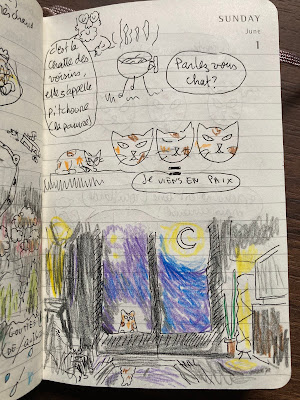 SUNDAY
June
1
c'est la
chatte des
voisins,
elle s'appelle
Pitchoune
(la pauvre)
Parlez-vous
chat?
=
JE VIENS EN PAIX
GOUTIÈ
DE